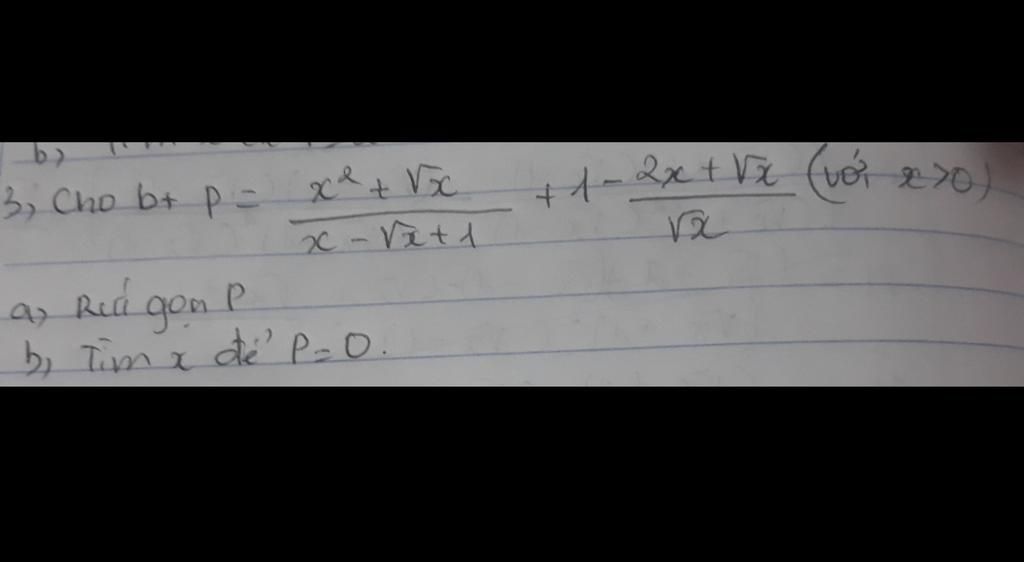 b,
3, Cho bt P = \frac{x² + √x}{x - √x + 1} + 1 - \frac{2x + √x}{√x} (với x > 0)
a, Rút gọn P
b, Tìm x để P = 0.